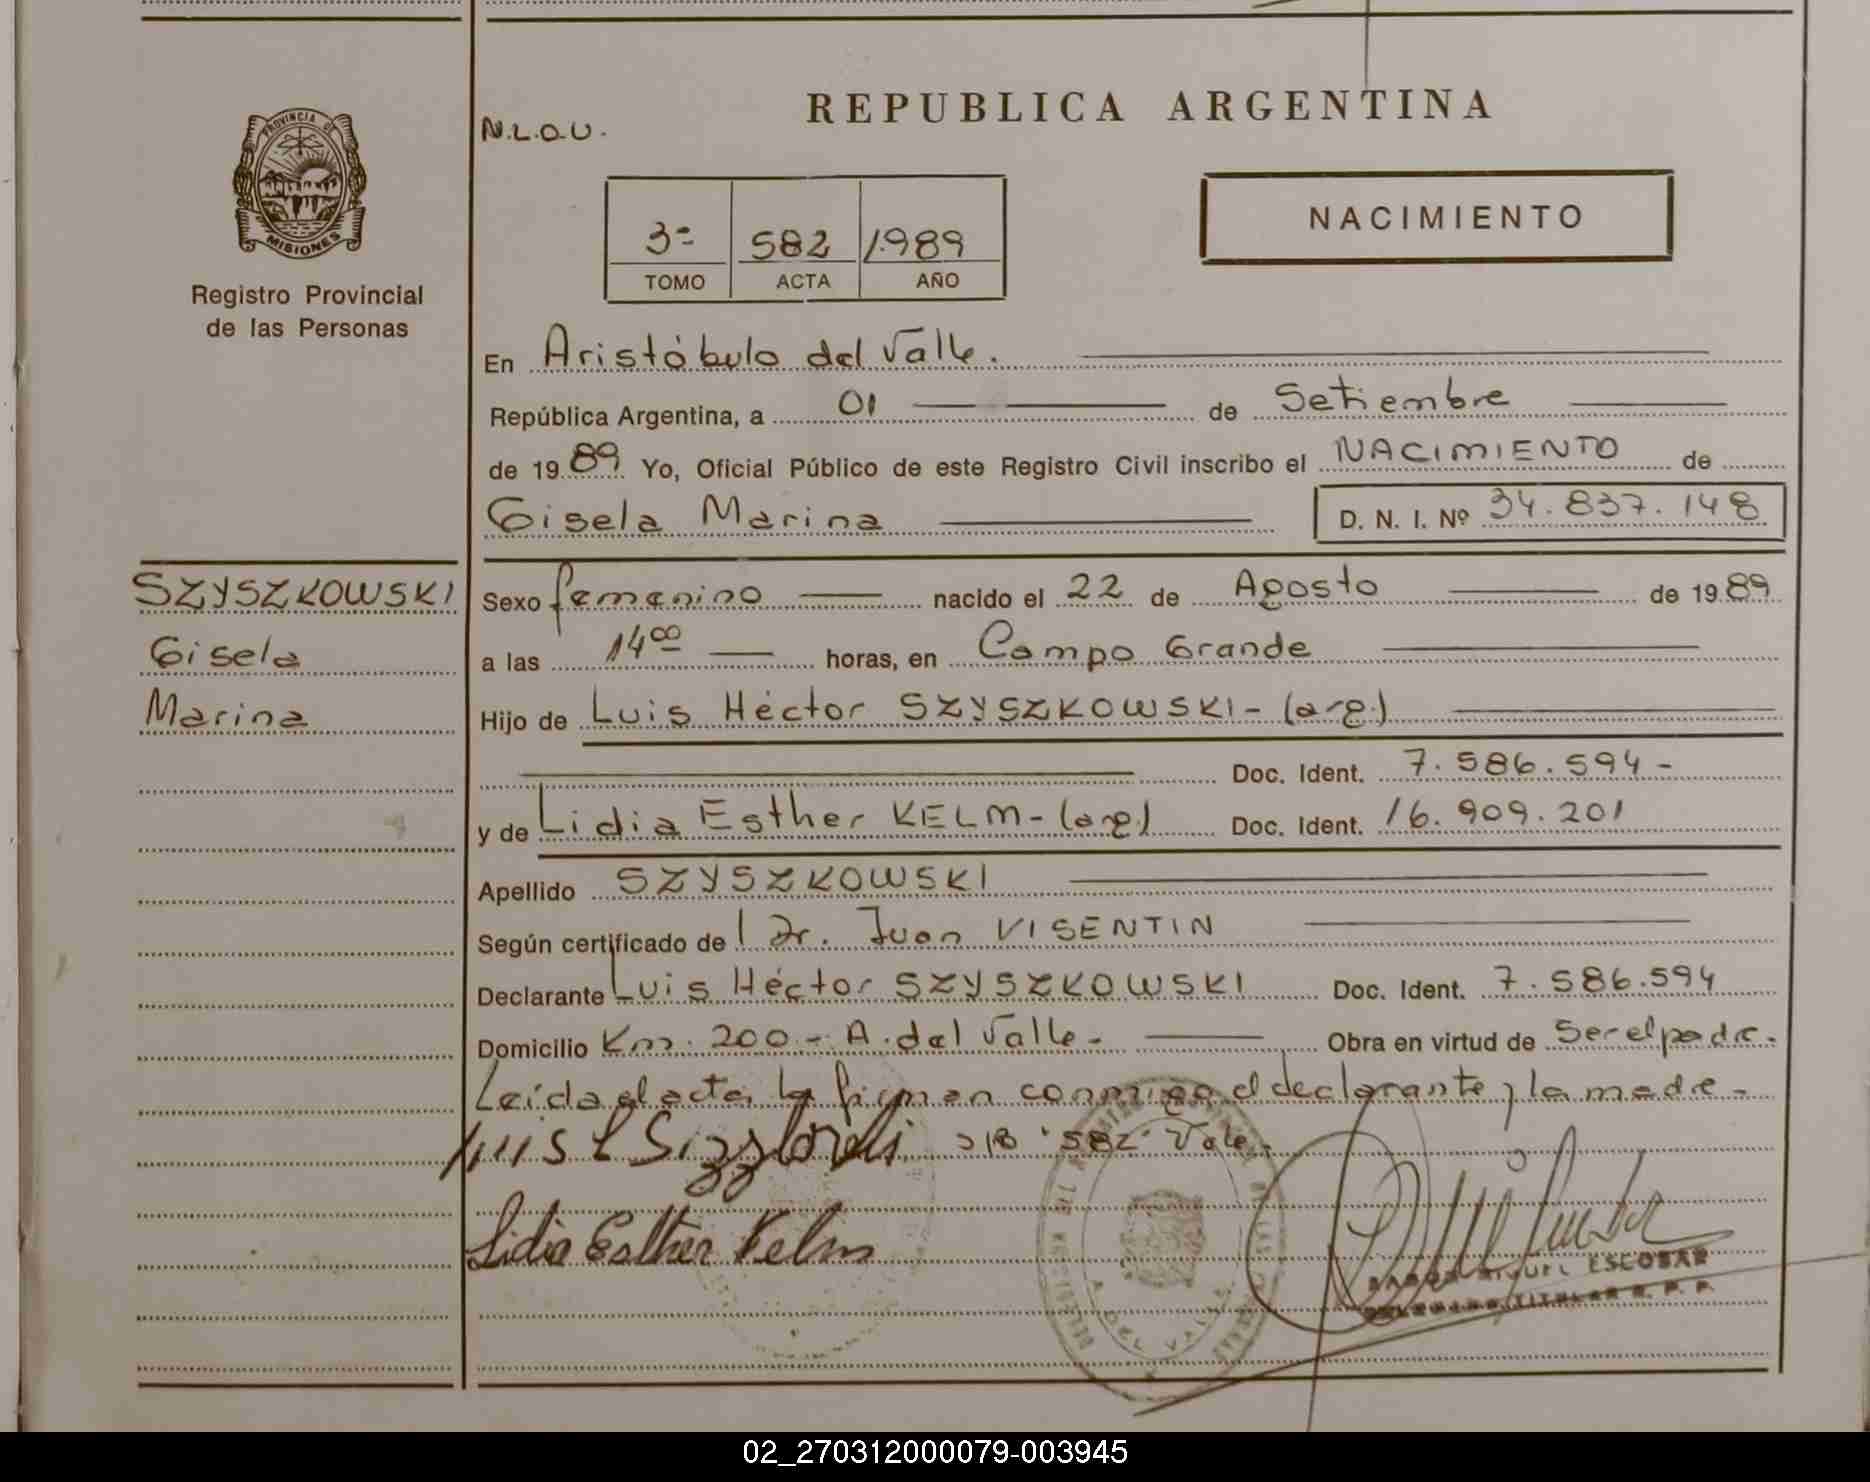 REPUBLICA ARGENTINA
N.L.O.U.
PROVINCIA DE
MISIONES
Registro Provincial
de las Personas
3º 582 1.989
TOMO ACTA AÑO
NACIMIENTO
En Aristóbulo del Valle.
República Argentina, a 01 de Setiembre
de 1989 Yo, Oficial Público de este Registro Civil inscribo el NACIMIENTO de
Gisela Marina D. N. I. Nº 34.837.148
SZYSZKOWSKI
Gisela
Marina
Sexo femenino nacido el 22 de Agosto de 1989
a las 14 00 horas, en Campo Grande
Hijo de Luis Héctor SZYSZKOWSKI - (arg.)
Doc. Ident. 7.586.594-
y de Lidia Esther KELM - (arg) Doc. Ident. 16.909.201
Apellido SZYSZKOWSKI
Según certificado de Dr. Juan VISENTIN
Declarante Luis Héctor SZYSZKOWSKI Doc. Ident. 7.586.594
Domicilio Km. 200 - A. del Valle - Obra en virtud de Ser el padre.
Leída el acta, la firman conmigo el declarante y la madre -
Luis S/B "582" Vale.
Lidia Esther Kelm
A. DEL VALLE
MIGUEL ESCOBAR
TITULAR R. P. P.
02_270312000079-003945